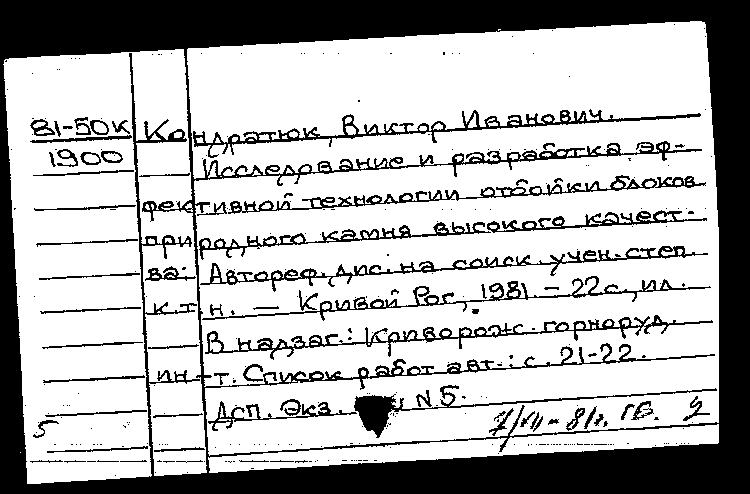 81-50к Кондратюк, Виктор Иванович.
1900 Исследование и разработка эф-
фективной технологии отбойки блоков
природного камня высокого качест-
ва: Автореф. дис. на соиск. учен. степ.
к.т.н. — Кривой Рог, 1981. – 22 с., ил.
В надзаг.: Криворож. горноруд.
ин-т. Список работ авт.: с. 21-22.
Дсп. Экз. N 5.
5